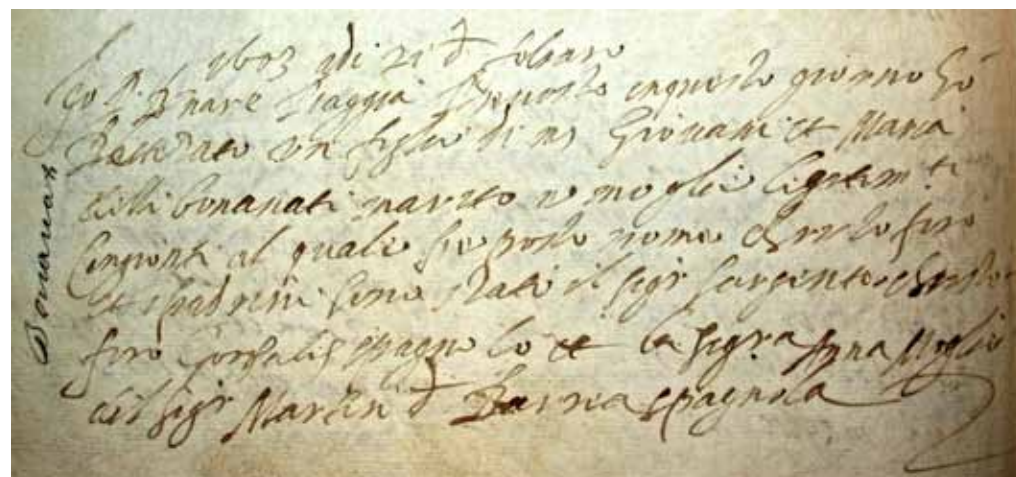 1603 adi 21 d febraro
Io P. Bnare Piaggia Preposto in questo giorno ho
batezato un figlio di ms Giovani et Maria
delli bonanati marito e moglie legitim.ti
Congionti al quale fu posto nome Christofaro
et i padrini sono stati il sigr sargente Christo
faro spagnolo et la sigra Anna Moglie
del sigr Martin d Barrea spagnola
Bonanat